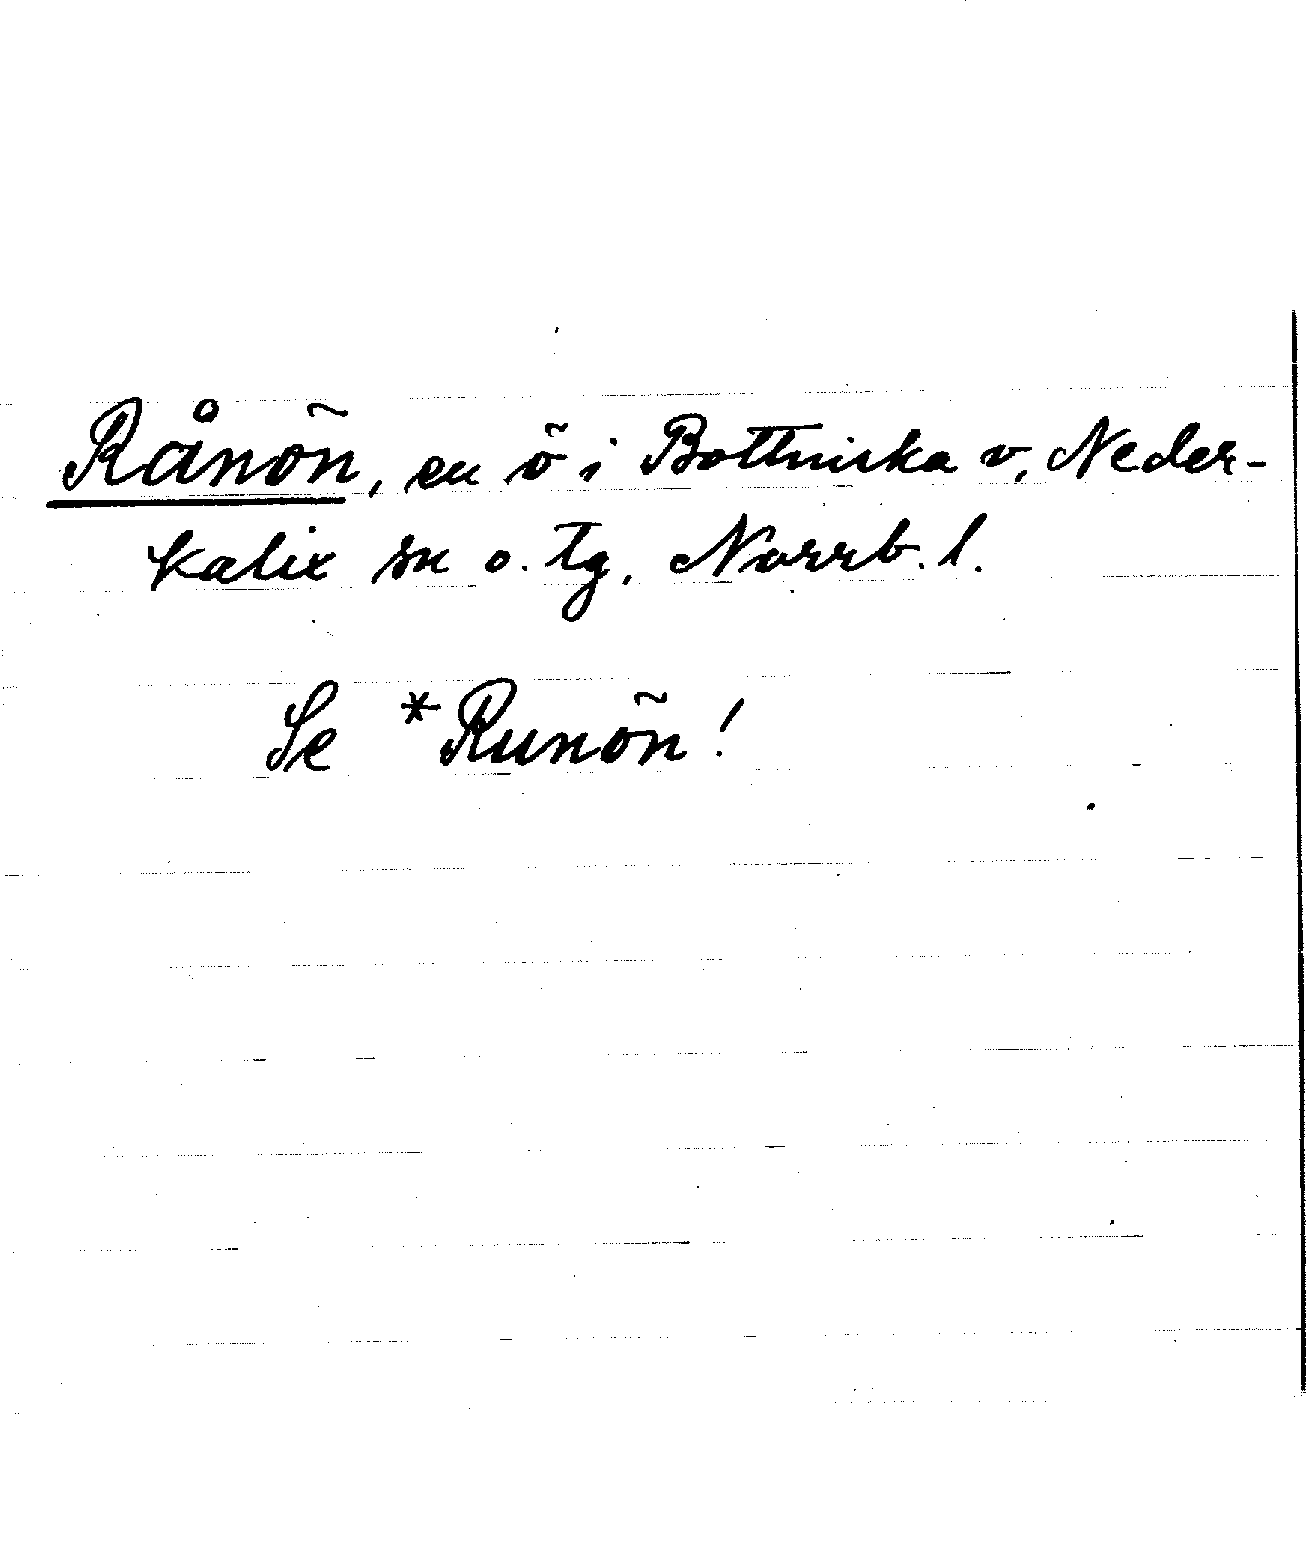 Rånön, en ö i Bottniska v, Neder-
kalix sn o. tg, Norrb. l.
Se *Runön!